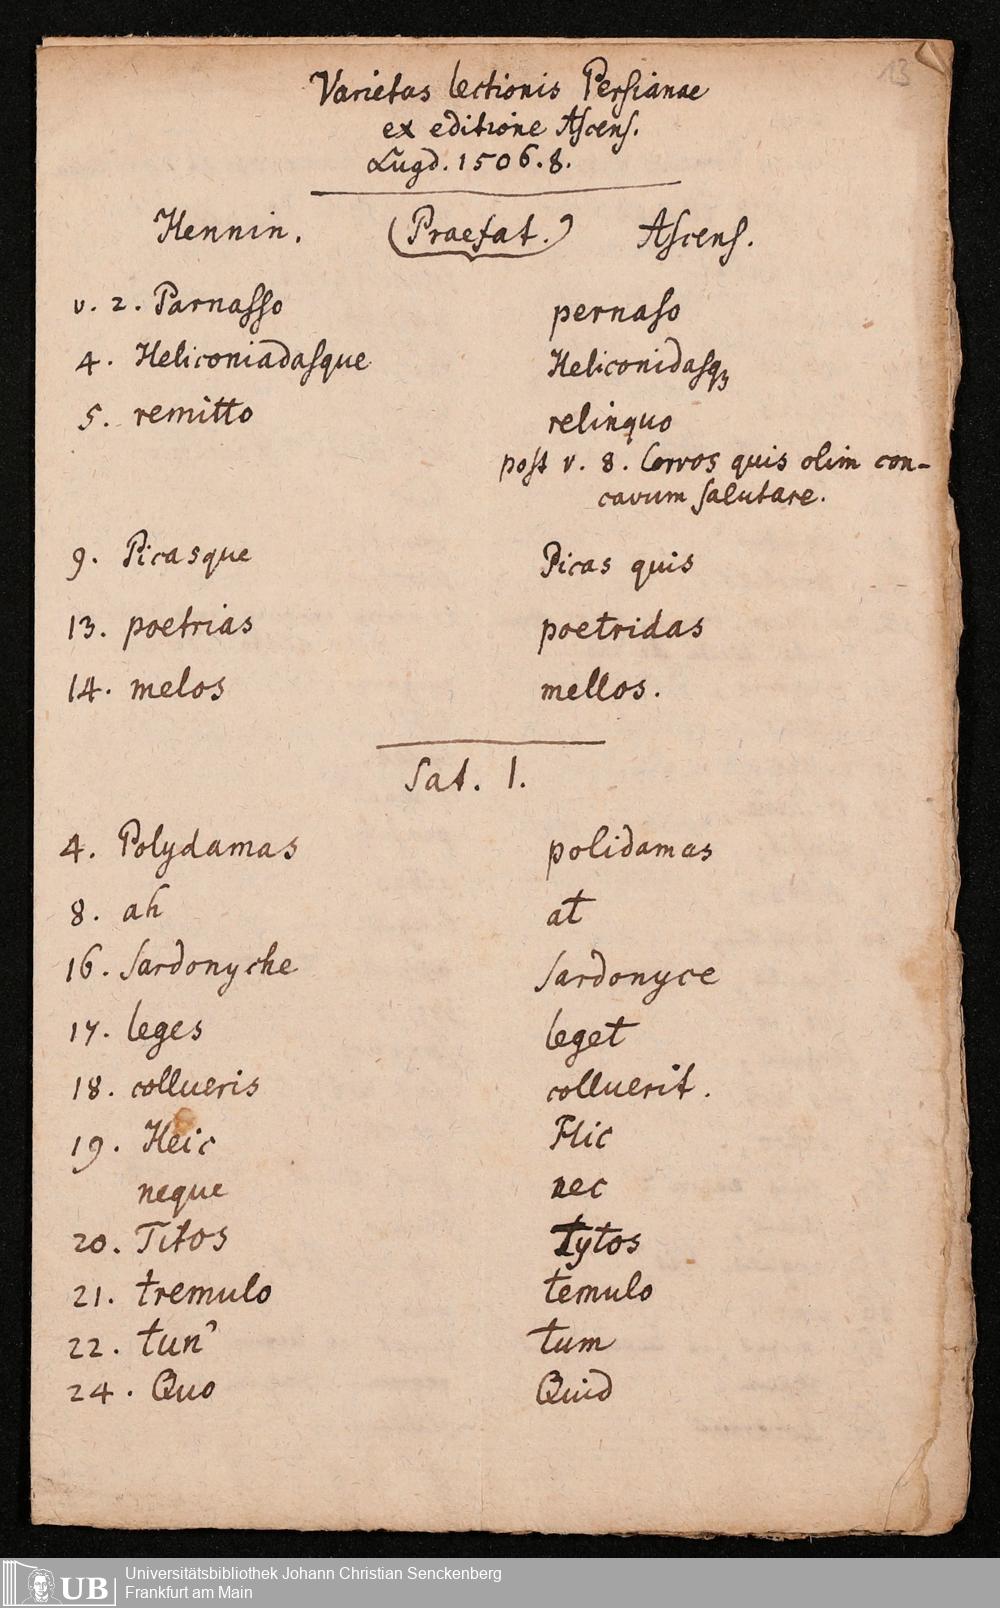 13
Varietas lectionis Persianae
ex editione Ascens.
Lugd. 1506. 8.
Hennin. (Praefat.) Ascens.
v. 2. Parnasso pernaso
4. Heliconiadasque Heliconidasqꝫ
5. remitto relinquo
post v. 8. Corvos quis olim con-
cavum salutare.
9. Picasque Picas quis
13. poetrias poetridas
14. melos mellos.
Sat. 1.
4. Polydamas polidamas
8. ah at
16. Sardonyche Sardonyce
17. leges leget
18. collueris colluerit.
19. Heic Hic
neque nec
20. Titos tytos
21. tremulo temulo
22. tun' tum
24. Quo Quid
UB Universitätsbibliothek Johann Christian Senckenberg
Frankfurt am Main